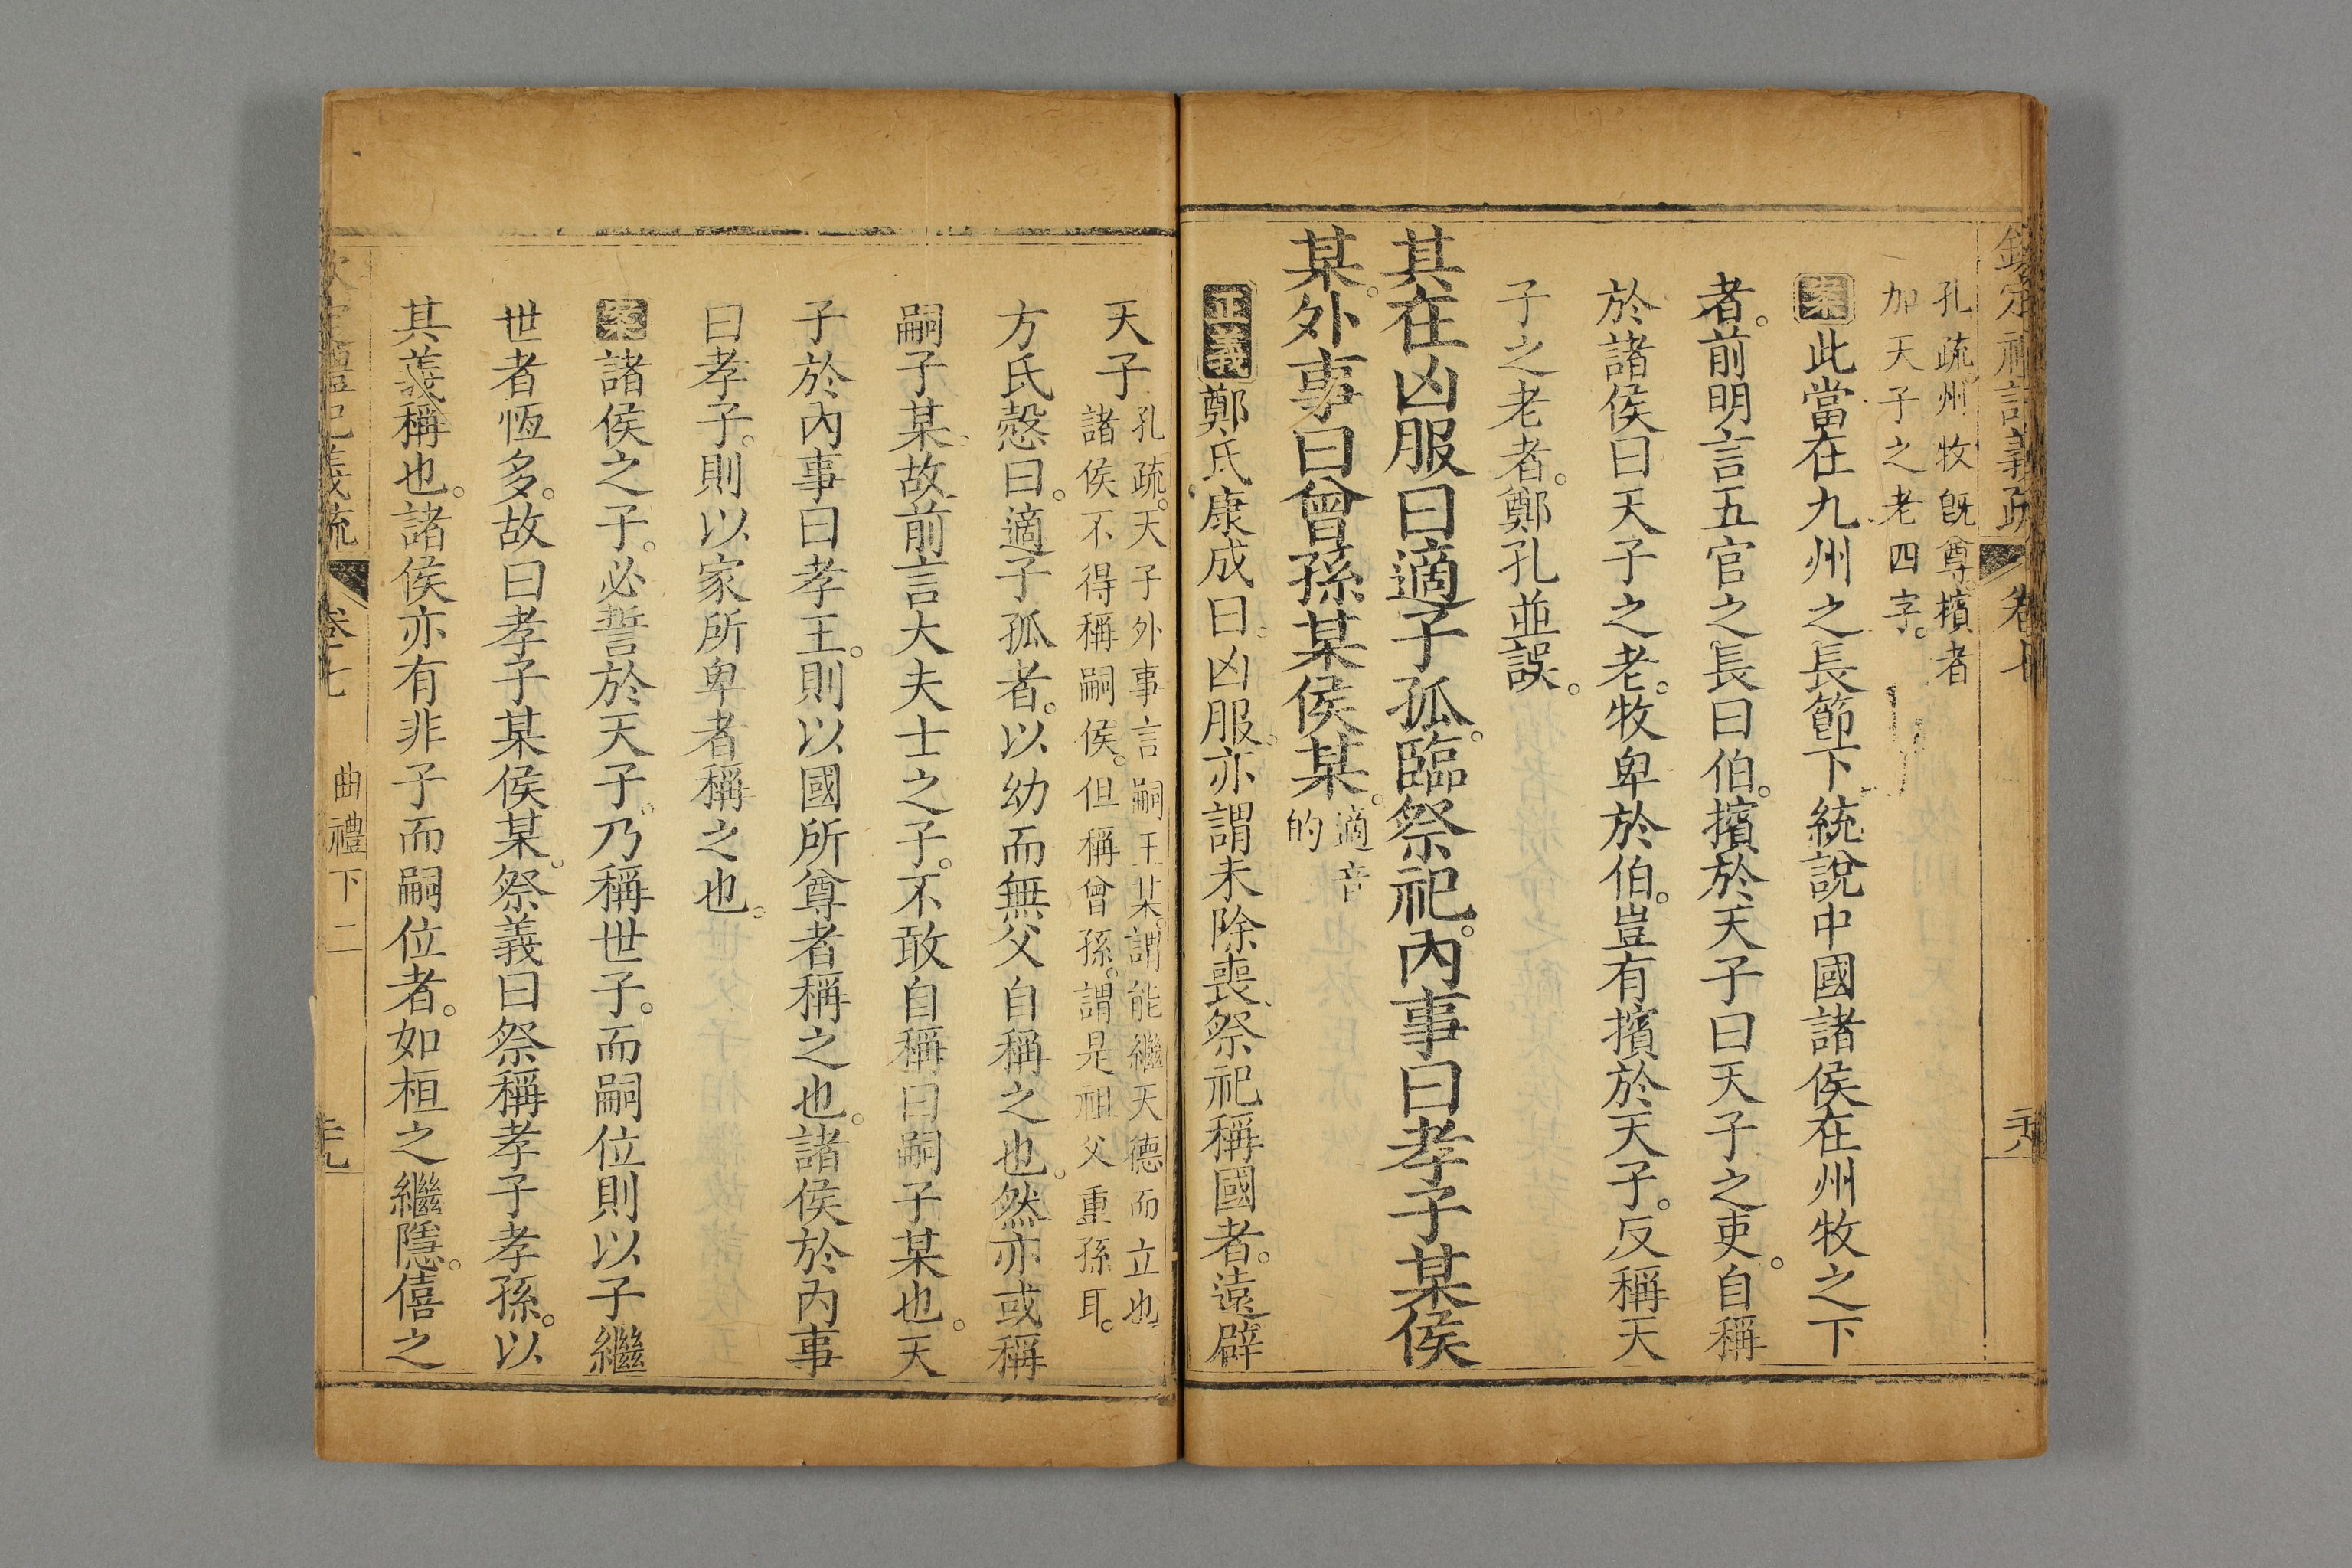 欽定禮記義疏 卷七 二十八
孔疏州牧旣尊擯者
加天子之老四字。
案此當在九州之長節下統說中國諸侯在州牧之下
者。前明言五官之長曰伯。擯於天子曰天子之吏。自稱
於諸侯曰天子之老。牧卑於伯。豈有擯於天子。反稱天
子之老者。鄭孔並誤。
其在凶服曰適子孤。臨祭祀。內事曰孝子某侯
某。外事曰曾孫某侯某。適音
的
正義鄭氏康成曰。凶服。亦謂未除喪。祭祀稱國者。遠辟
天子孔疏。天子外事言嗣王某。謂能繼天德而立也
諸侯不得稱嗣侯。但稱曾孫。謂是祖父重孫耳。
方氏慤曰。適子孤者。以幼而無父自稱之也。然亦或稱
嗣子某。故前言大夫士之子。不敢自稱曰嗣子某也。天
子於內事曰孝王。則以國所尊者稱之也。諸侯於內事
曰孝子。則以家所卑者稱之也。
案諸侯之子。必誓於天子。乃稱世子。而嗣位則以子繼
世者恆多。故曰孝子某侯某。祭義曰祭稱孝子孝孫。以
其義稱也。諸侯亦有非子而嗣位者。如桓之繼隱。僖之
欽定禮記義疏 卷七 曲禮下二 二十九